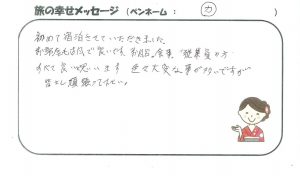 旅の幸せメッセージ (ペンネーム : カ )
初めて宿泊させていただきました。
お部屋も清潔で良いです。お風呂、食事、従業員の方
すべて良いと思います 色々大変な事が多いですが
皆さん頑張って下さい。